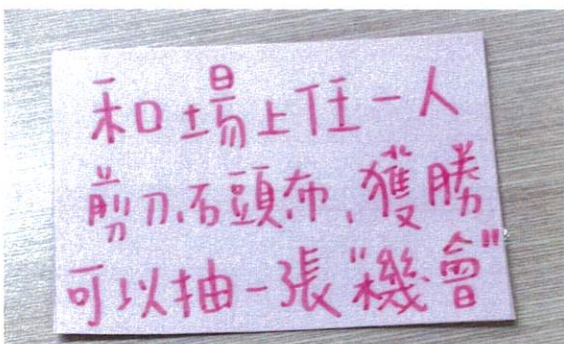 和場上任一人
剪刀、石頭布、獲勝
可以抽一張"機會"